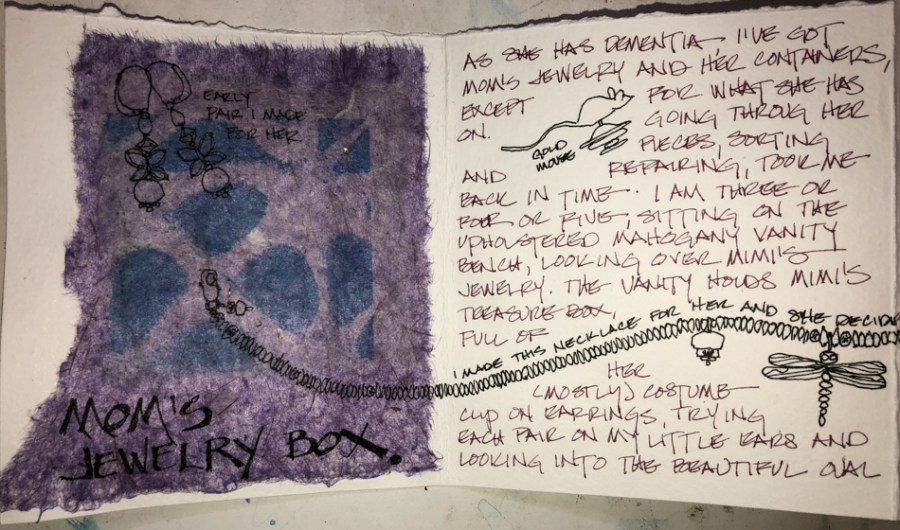 EARLY
PAIR I MADE
FOR HER
MOM'S
JEWELRY BOX.
AS SHE HAS DEMENTIA, I'VE GOT
MOM'S JEWELRY AND HER CONTAINERS,
EXCEPT FOR WHAT SHE HAS
ON. GOING THROUG HER
PIECES, SORTING
GOLD
MOUSE
AND REPAIRING, TOOK ME
BACK IN TIME. I AM THREE OR
FOUR OR FIVE, SITTING ON THE
UPHOLSTERED MAHOGANY VANITY
BENCH, LOOKING OVER MIMI'S
JEWELRY. THE VANITY HOLDS MIMI'S
TREASURE BOX,
FULL OF
I MADE THIS NECKLACE FOR HER AND SHE DECIDED
HER
(MOSTLY) COSTUME
CLIP ON EARRINGS, TRYING
EACH PAIR ON MY LITTLE EARS AND
LOOKING INTO THE BEAUTIFUL OVAL